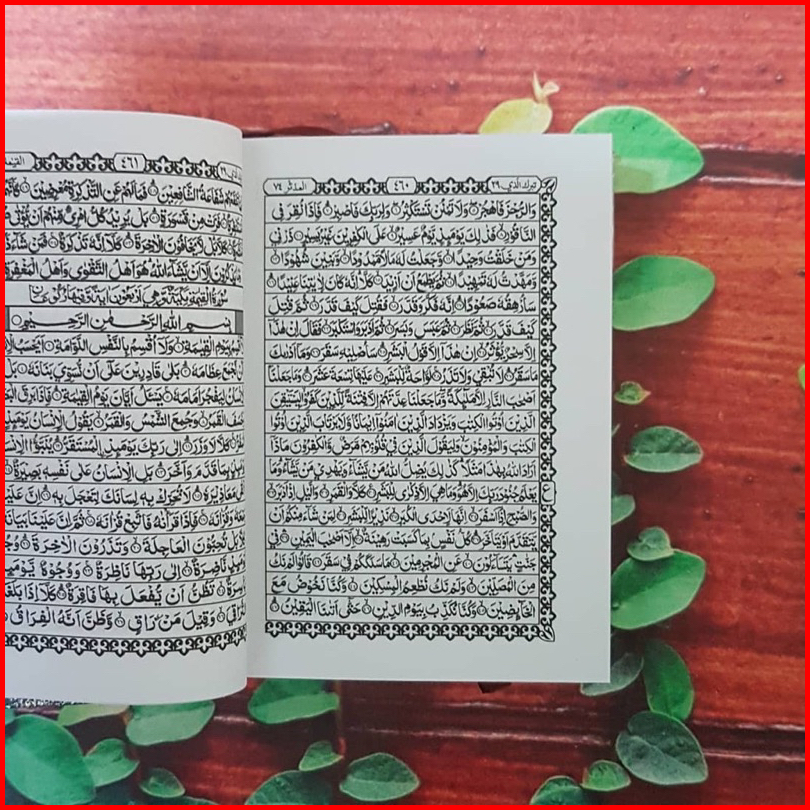 تبرك الذي ٢٩ ٤٦٠ المدثر ٧٤
وَالرُّجْزَ فَاهْجُرْ ۝ وَلَا تَمْنُنْ تَسْتَكْثِرُ ۝ وَلِرَبِّكَ فَاصْبِرْ ۝ فَإِذَا نُقِرَ فِي
النَّاقُورِ ۝ فَذٰلِكَ يَوْمَئِذٍ يَوْمٌ عَسِيرٌ ۝ عَلَى الْكٰفِرِينَ غَيْرُ يَسِيرٍ ۝ ذَرْنِي
وَمَنْ خَلَقْتُ وَحِيدًا ۝ وَجَعَلْتُ لَهُ مَالًا مَمْدُودًا ۝ وَبَنِينَ شُهُودًا ۝
وَمَهَّدْتُ لَهُ تَمْهِيدًا ۝ ثُمَّ يَطْمَعُ أَنْ أَزِيدَ ۝ كَلَّا إِنَّهُ كَانَ لِاٰيٰتِنَا عَنِيدًا ۝
سَأُرْهِقُهُ صَعُودًا ۝ إِنَّهُ فَكَّرَ وَقَدَّرَ ۝ فَقُتِلَ كَيْفَ قَدَّرَ ۝ ثُمَّ قُتِلَ
كَيْفَ قَدَّرَ ۝ ثُمَّ نَظَرَ ۝ ثُمَّ عَبَسَ وَبَسَرَ ۝ ثُمَّ أَدْبَرَ وَاسْتَكْبَرَ ۝ فَقَالَ إِنْ هٰذَا
إِلَّا سِحْرٌ يُؤْثَرُ ۝ إِنْ هٰذَا إِلَّا قَوْلُ الْبَشَرِ ۝ سَأُصْلِيهِ سَقَرَ ۝ وَمَا أَدْرٰىكَ
مَا سَقَرُ ۝ لَا تُبْقِي وَلَا تَذَرُ ۝ لَوَّاحَةٌ لِلْبَشَرِ ۝ عَلَيْهَا تِسْعَةَ عَشَرَ ۝ وَمَا جَعَلْنَا
أَصْحٰبَ النَّارِ إِلَّا مَلٰئِكَةً وَمَا جَعَلْنَا عِدَّتَهُمْ إِلَّا فِتْنَةً لِلَّذِينَ كَفَرُوا لِيَسْتَيْقِنَ
الَّذِينَ أُوتُوا الْكِتٰبَ وَيَزْدَادَ الَّذِينَ اٰمَنُوا إِيمَانًا وَلَا يَرْتَابَ الَّذِينَ أُوتُوا
الْكِتٰبَ وَالْمُؤْمِنُونَ وَلِيَقُولَ الَّذِينَ فِي قُلُوبِهِمْ مَرَضٌ وَالْكٰفِرُونَ مَاذَا
أَرَادَ اللهُ بِهٰذَا مَثَلًا كَذٰلِكَ يُضِلُّ اللهُ مَنْ يَشَاءُ وَيَهْدِي مَنْ يَشَاءُ وَمَا
يَعْلَمُ جُنُودَ رَبِّكَ إِلَّا هُوَ وَمَا هِيَ إِلَّا ذِكْرٰى لِلْبَشَرِ ۝ كَلَّا وَالْقَمَرِ ۝ وَالَّيْلِ إِذْ أَدْبَرَ ۝
وَالصُّبْحِ إِذَا أَسْفَرَ ۝ إِنَّهَا لَإِحْدَى الْكُبَرِ ۝ نَذِيرًا لِلْبَشَرِ ۝ لِمَنْ شَاءَ مِنْكُمْ أَنْ
يَتَقَدَّمَ أَوْ يَتَأَخَّرَ ۝ كُلُّ نَفْسٍ بِمَا كَسَبَتْ رَهِينَةٌ ۝ إِلَّا أَصْحٰبَ الْيَمِينِ ۝ فِي
جَنّٰتٍ يَتَسَاءَلُونَ ۝ عَنِ الْمُجْرِمِينَ ۝ مَا سَلَكَكُمْ فِي سَقَرَ ۝ قَالُوا لَمْ نَكُ
مِنَ الْمُصَلِّينَ ۝ وَلَمْ نَكُ نُطْعِمُ الْمِسْكِينَ ۝ وَكُنَّا نَخُوضُ مَعَ
الْخَائِضِينَ ۝ وَكُنَّا نُكَذِّبُ بِيَوْمِ الدِّينِ ۝ حَتّٰى أَتٰىنَا الْيَقِينُ ۝
٢٩ ٤٦١ القيمة
شَفَاعَةُ الشَّافِعِينَ ۝ فَمَا لَهُمْ عَنِ التَّذْكِرَةِ مُعْرِضِينَ ۝
فَرَّتْ مِنْ قَسْوَرَةٍ ۝ بَلْ يُرِيدُ كُلُّ امْرِئٍ مِنْهُمْ أَنْ يُؤْتٰى
كَلَّا بَلْ لَا يَخَافُونَ الْاٰخِرَةَ ۝ كَلَّا إِنَّهُ تَذْكِرَةٌ ۝ فَمَنْ شَاءَ
إِلَّا أَنْ يَشَاءَ اللهُ هُوَ أَهْلُ التَّقْوٰى وَأَهْلُ الْمَغْفِرَةِ
سورة القيمة مكية وهي اربعون اية
بِسْمِ اللهِ الرَّحْمٰنِ الرَّحِيمِ
بِيَوْمِ الْقِيٰمَةِ ۝ وَلَا أُقْسِمُ بِالنَّفْسِ اللَّوَّامَةِ ۝ أَيَحْسَبُ
نَجْمَعَ عِظَامَهُ ۝ بَلٰى قَادِرِينَ عَلٰى أَنْ نُسَوِّيَ بَنَانَهُ ۝ بَلْ
لِيَفْجُرَ أَمَامَهُ ۝ يَسْئَلُ أَيَّانَ يَوْمُ الْقِيٰمَةِ ۝ فَإِذَا بَرِقَ
وَخَسَفَ الْقَمَرُ ۝ وَجُمِعَ الشَّمْسُ وَالْقَمَرُ ۝ يَقُولُ الْإِنْسَانُ يَوْمَئِذٍ
كَلَّا لَا وَزَرَ ۝ إِلٰى رَبِّكَ يَوْمَئِذٍ الْمُسْتَقَرُّ ۝ يُنَبَّؤُا الْإِنْسَانُ
بِمَا قَدَّمَ وَأَخَّرَ ۝ بَلِ الْإِنْسَانُ عَلٰى نَفْسِهِ بَصِيرَةٌ ۝
مَعَاذِيرَهُ ۝ لَا تُحَرِّكْ بِهِ لِسَانَكَ لِتَعْجَلَ بِهِ ۝ إِنَّ عَلَيْنَا
وَقُرْاٰنَهُ ۝ فَإِذَا قَرَأْنَاهُ فَاتَّبِعْ قُرْاٰنَهُ ۝ ثُمَّ إِنَّ عَلَيْنَا بَيَانَهُ
بَلْ تُحِبُّونَ الْعَاجِلَةَ ۝ وَتَذَرُونَ الْاٰخِرَةَ ۝ وُجُوهٌ
نَاضِرَةٌ ۝ إِلٰى رَبِّهَا نَاظِرَةٌ ۝ وَوُجُوهٌ يَوْمَئِذٍ
بَاسِرَةٌ ۝ تَظُنُّ أَنْ يُفْعَلَ بِهَا فَاقِرَةٌ ۝ كَلَّا إِذَا بَلَغَتِ
التَّرَاقِيَ ۝ وَقِيلَ مَنْ رَاقٍ ۝ وَظَنَّ أَنَّهُ الْفِرَاقُ ۝